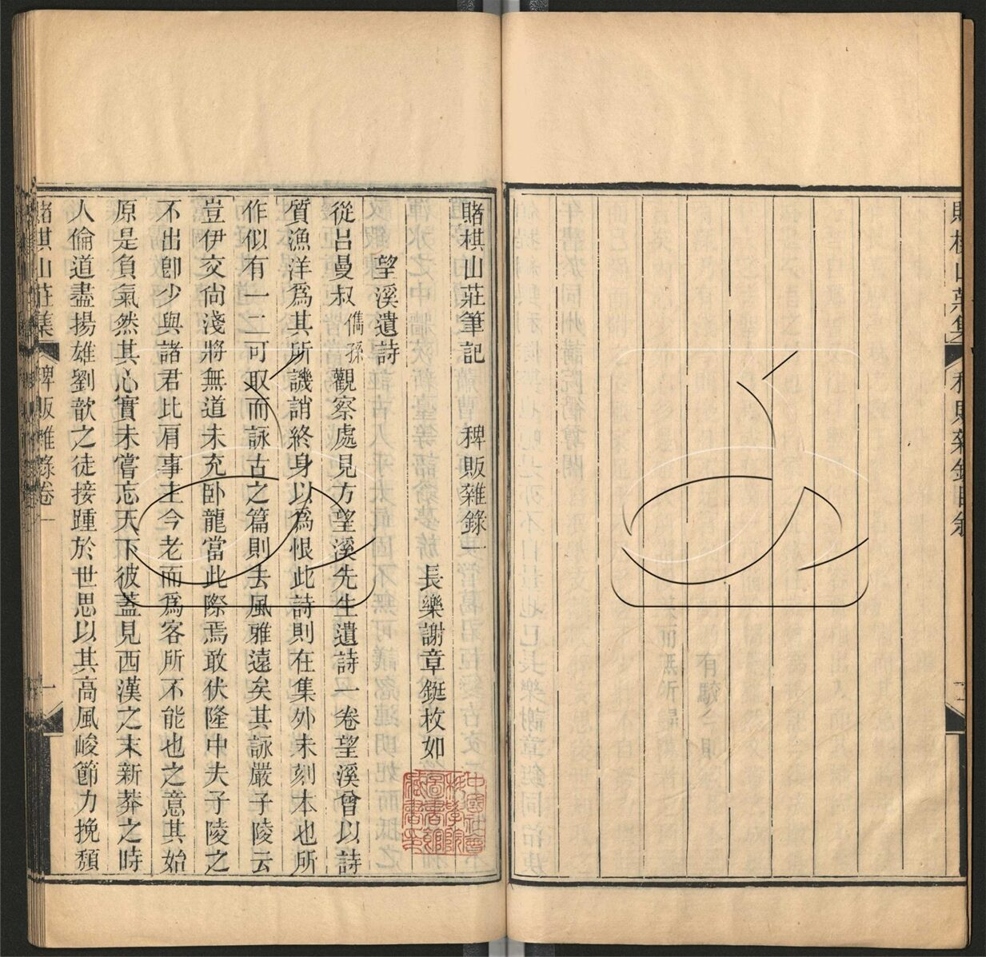 賭棋山莊集 稗販雜錄目
賭棋山莊筆記 稗販雜錄一
長樂謝章鋌枚如
中國社會
科學院
圖書館
藏書
望溪遺詩
從呂曼叔儁孫觀察處見方望溪先生遺詩一卷望溪曾以詩
質漁洋爲其所譏誚終身以爲恨此詩則在集外未刻本也所
作似有一二可取而詠古之篇則去風雅遠矣其詠嚴子陵云
豈伊交尙淺將無道未充卧龍當此際焉敢伏隆中夫子陵之
不出卽少與諸君比肩事主今老而爲客所不能也之意其始
原是負氣然其心實未嘗忘天下彼蓋見西漢之末新莽之時
人倫道盡揚雄劉歆之徒接踵於世思以其高風峻節力挽頽
賭棋山莊集 稗販雜錄卷一 一